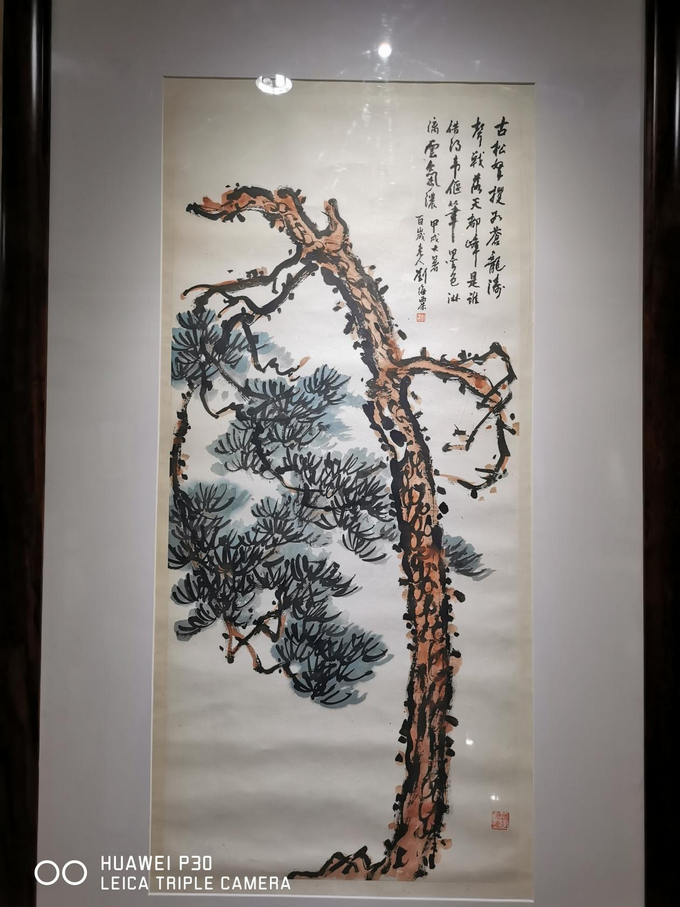 古松拏攫蒼龍濤
聲戰落天都峰是誰
借得韋偃筆墨色淋
漓雲氣濃 甲戌大暑
百歲老人劉海粟
HUAWEI P30
LEICA TRIPLE CAMERA